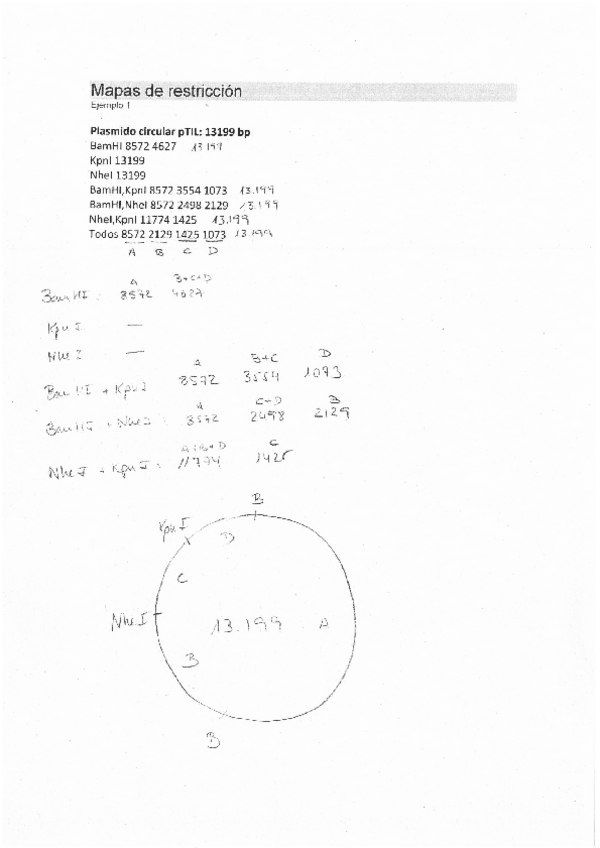 Mapas de restricción
Ejemplo 1
Plasmido circular pTIL: 13199 bp
BamHI 8572 4627 13.199
KpnI 13199
NheI 13199
BamHI,KpnI 8572 3554 1073 13.199
BamHI,NheI 8572 2498 2129 13.199
NheI,KpnI 11774 1425 13.199
Todos 8572 2129 1425 1073 13.199
A B C D
A B+C+D
Bam HI : 8572 4627
Kpn I —
Nhe I —
A B+C D
Bam HI + Kpn I 8572 3554 1073
A C+D B
Bam HI + Nhe I : 8572 2498 2129
A+B+D C
Nhe I + Kpn I : 11774 1425
B
Kpn I
D
C
Nhe I 13.199 A
B
B